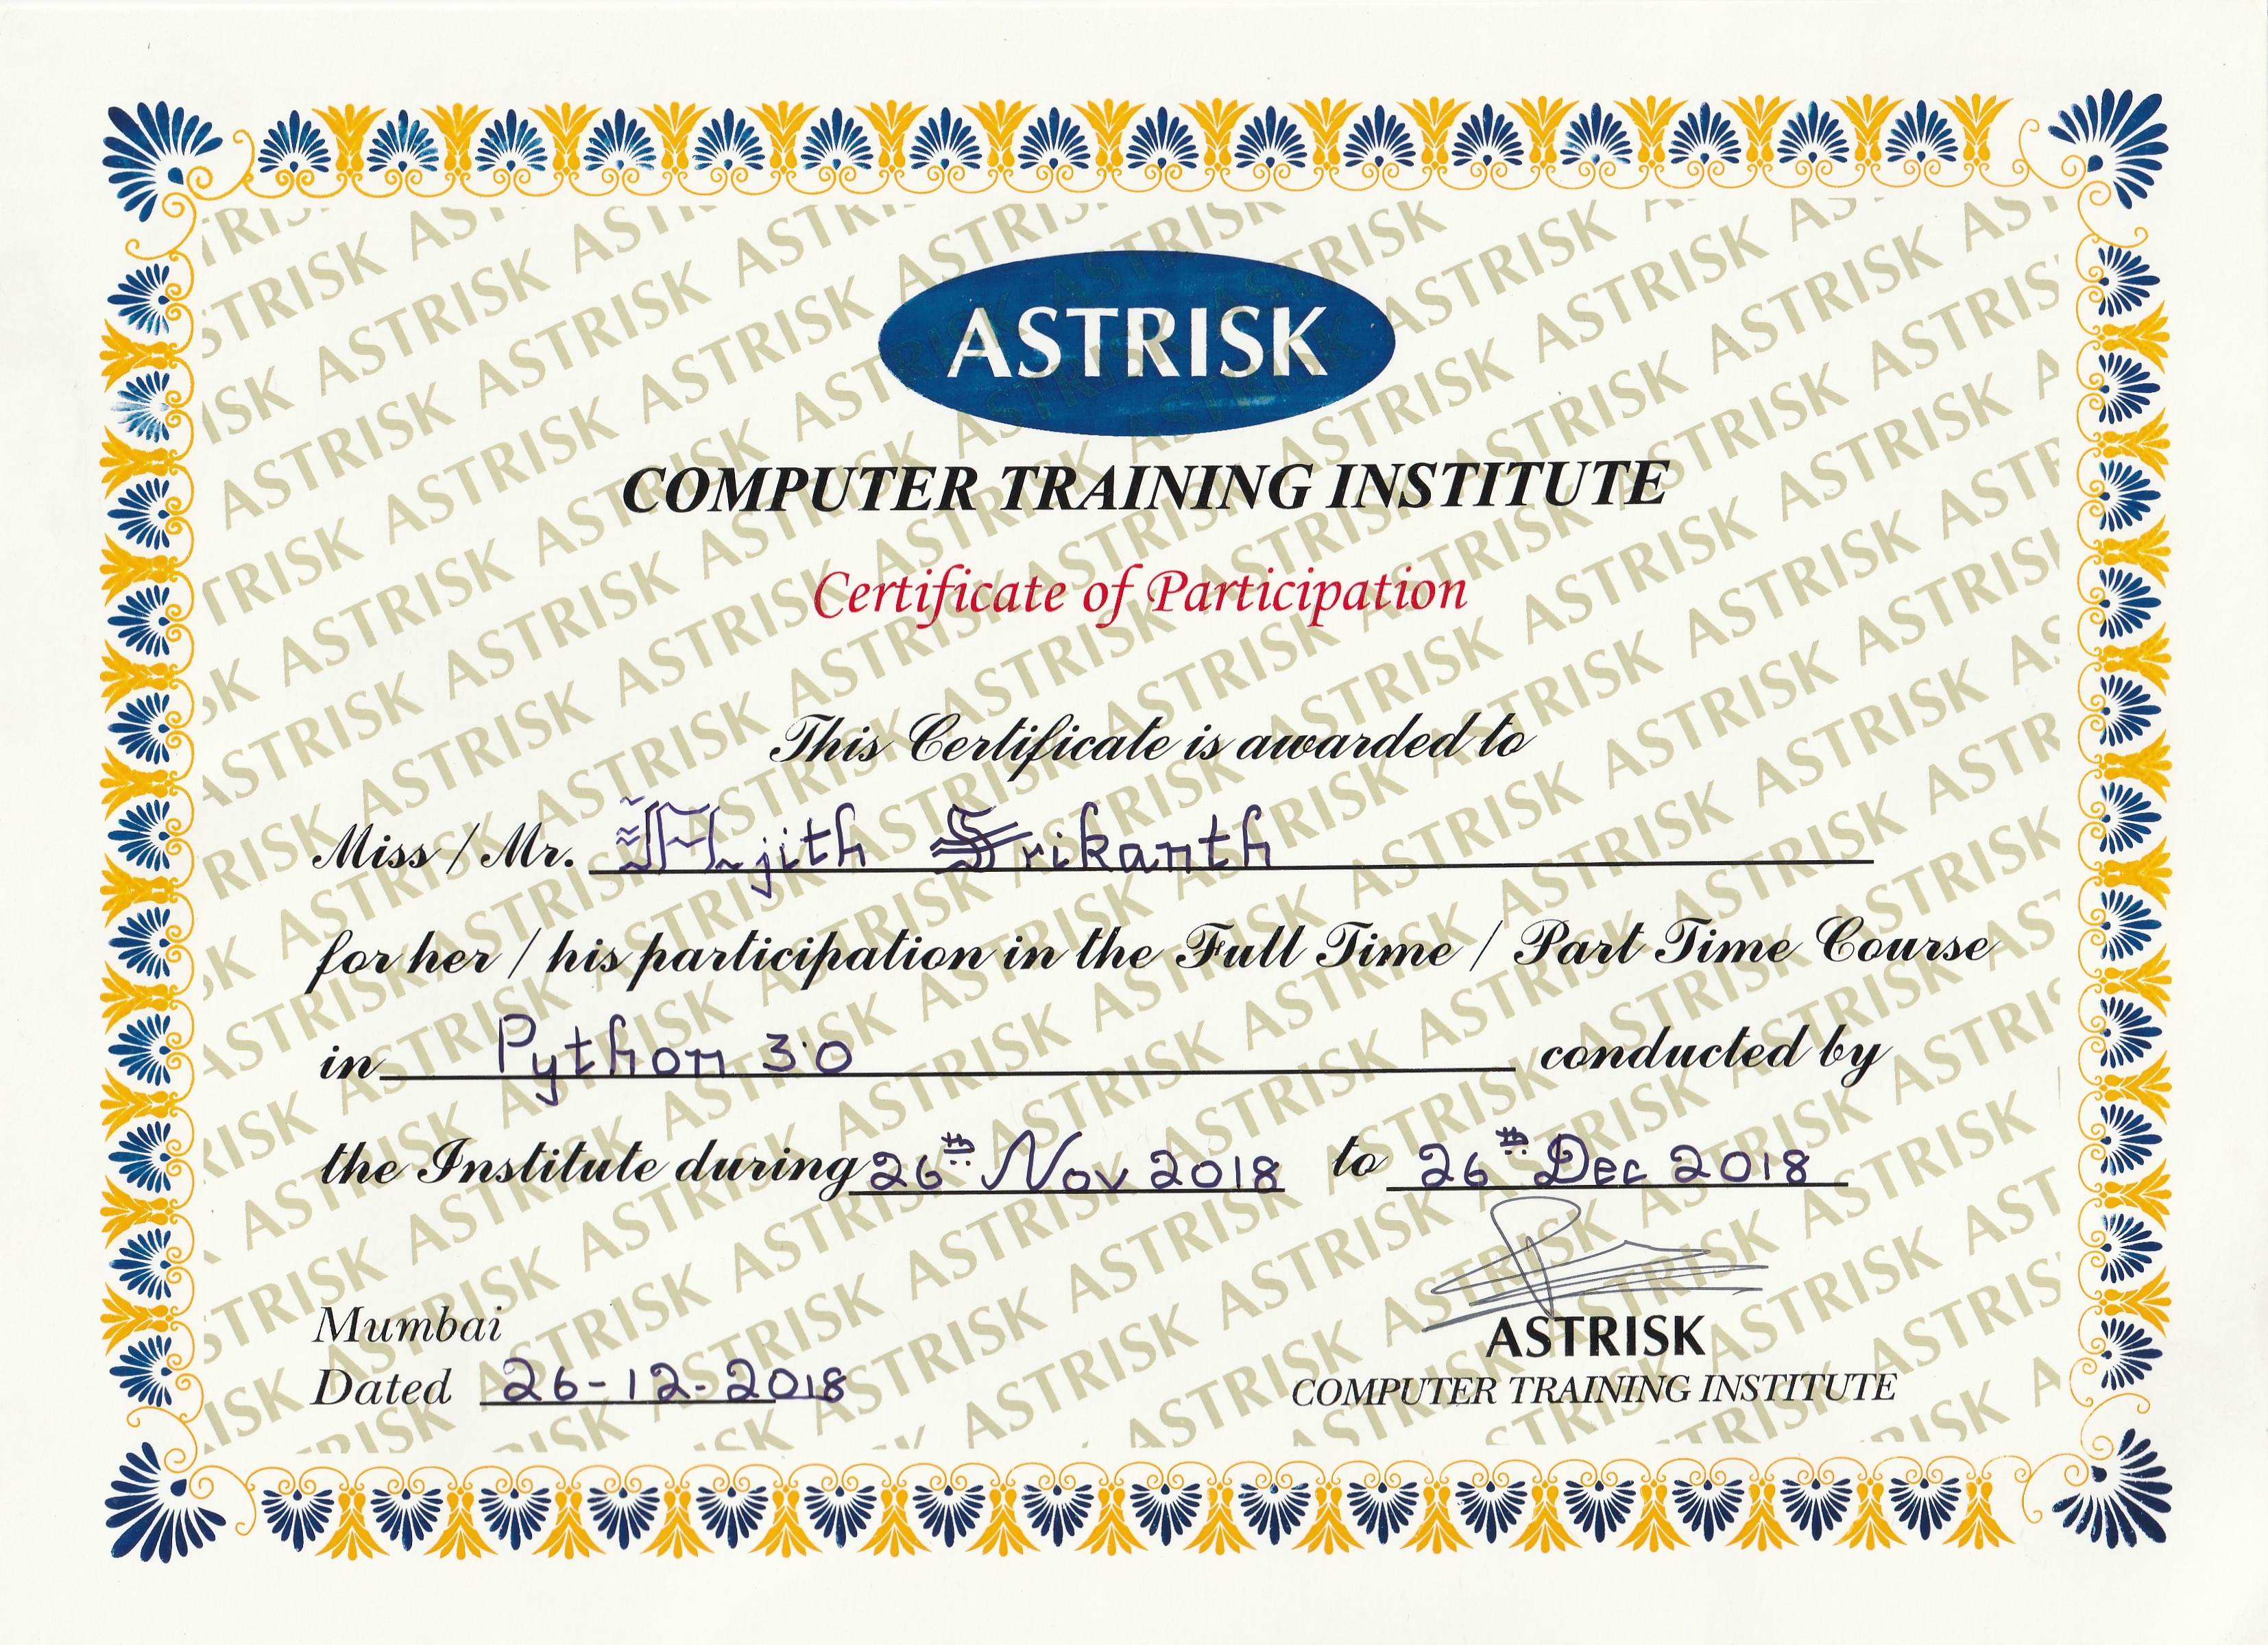 ASTRISK
COMPUTER TRAINING INSTITUTE
Certificate of Participation
This Certificate is awarded to
Miss / Mr. Ajith Srikanth
for her / his participation in the Full Time / Part Time Course
in Python 3.0 conducted by
the Institute during 26th Nov 2018 to 26th Dec 2018
Mumbai
Dated 26-12-2018
ASTRISK
COMPUTER TRAINING INSTITUTE